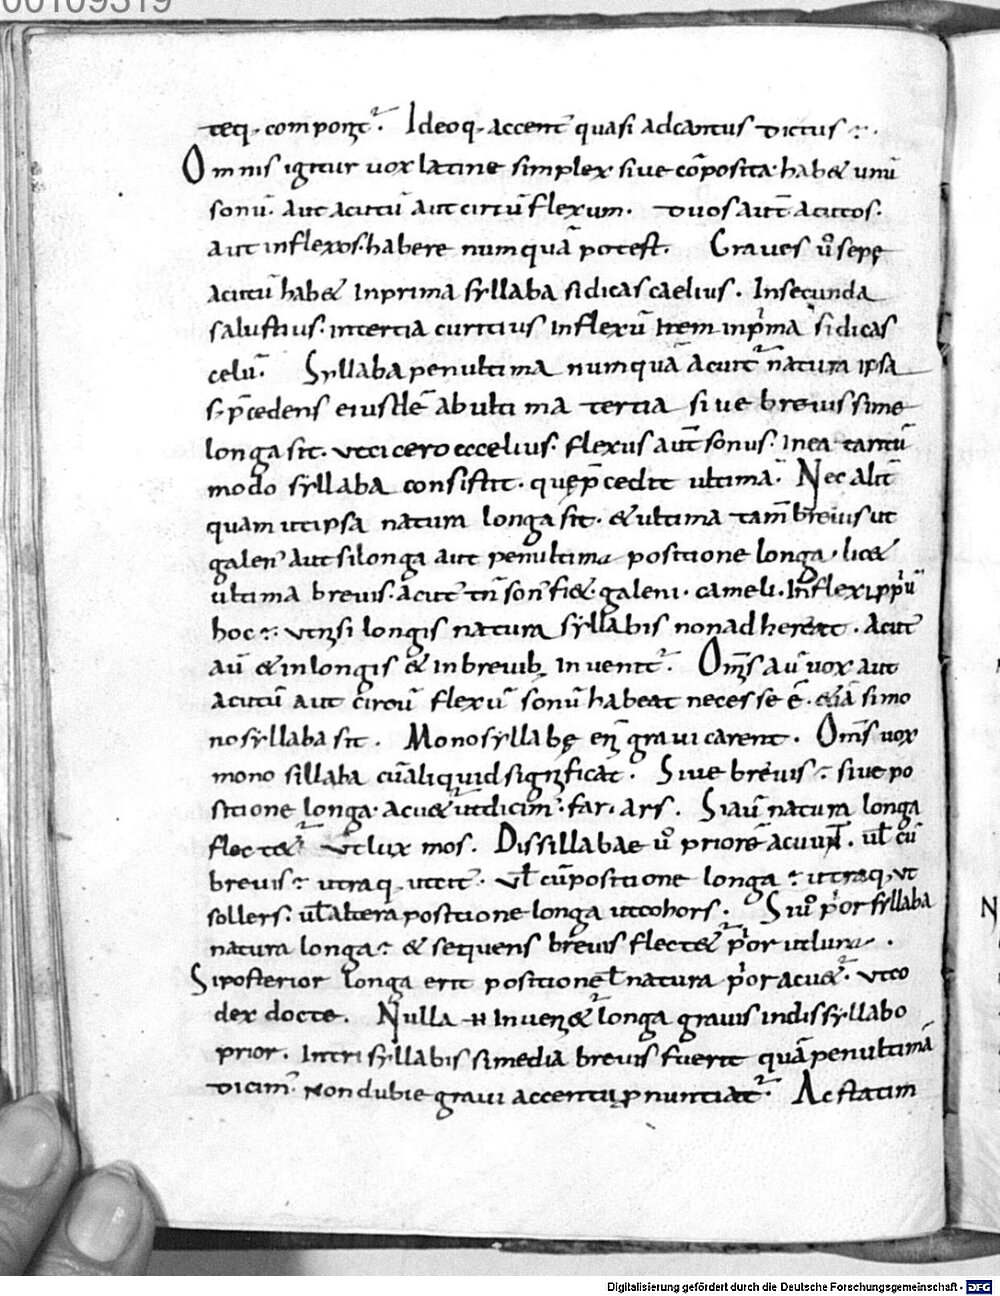 00109319
teq; componit͛. Ideoq; accent᷒ quasi adcantus dictus :·.
Omnis igitur uox latine simplex siue cōposita habet unū
sonū. aut acutū aut circū flexum. duos aut̄ acutos.
aut inflexos. habere numquā potest. Graues ů sepę
acutū habet Inprima syllaba sidicas caelius. Insecunda
salustius. intertia curtius Inflexū Item inp̄ma si dicas
celū. Syllaba penultima numquā acuit͛ natura ipsa
s; p̄cedens eiusdē abulti ma tertia siue breuissime
longa sit. utcicero etcelius. flexus aut̄ sonus. Inea tantū
modo syllaba consistit. quęp̄cedit ultimā. Nec alit̄
quam utipsa natura longa sit. & ultima tam̄ breuis ut
galen᷒ aut silonga aut penultima positione longa. licet
ultima breuis. acut᷒ tn̄ son᷒ fiet. galeni. cameli. Inflexi ꝓpriū
hoc :· utnisi longis natura syllabis nonadhereat. Acut᷒
aū & inlongis & inbreuib; Inuenit͛. Om̄s aū uox aut
acutū aut circū flexū sonū habeat necesse ē. etiā simo
nosyllaba sit. Monosyllabę eni̅ graui carent. Om̄s uox
mono sillaba cū aliquid significat. Siue breuis :· siue po
sitione longa. acuet͛ utdicim᷒. far. ars. Siaū natura longa
flectet͛ Utlux mos. Dissillabae ů priorē acuunt. uł cū
breuis :· utraq; utcit᷒. Uł cūpositione longa :· utraq; ut
sollers. uł altera positione longa utcohors. Siů prior syllaba
natura longa :· & sequens breuis flectet͛ prior utluna.
Siposterior longa erit positione ł natura prior acuet͛. utco
dex docte. Nulla H Inueniet͛ longa grauis indissyllabo
prior. Intrisyllabis simedia breuis fuerit quā penultimā
dicim᷒ Nondubie graui accentu ꝓnuntiat͛. Ac statim
Digitalisierung gefördert durch die Deutsche Forschungsgemeinschaft - DFG